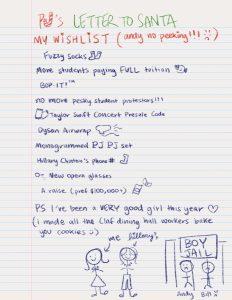 PJ's LETTER TO SANTA
MY WISHLIST (andy no peeking!!!)
Fuzzy Socks
More students paying FULL tuition
BOP-IT!™
no more pesky student protestors!!!
Taylor Swift Concert Presale Code
Dyson Airwrap
Monogrammed PJ PJ set
Hillary Clinton's phone #
New opera glasses
A raise (pref $100,000+)
PS I've been a VERY good girl this year ♡
(i made all the Claf dining hall workers bake
you cookies)
me
Hillary?
BOY
JAIL
Andy
Bill